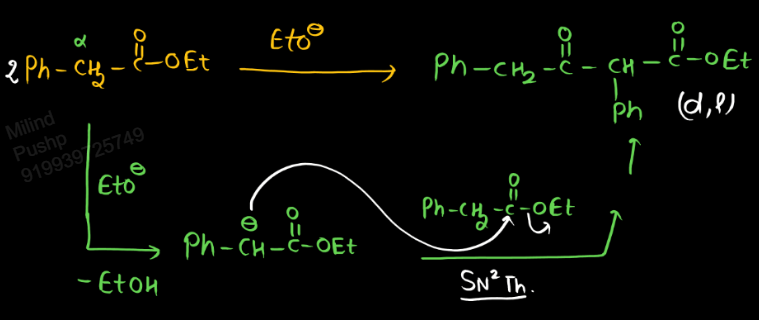 2 Ph-CH₂-C(=O)-OEt
α
EtO⊖
Ph-CH₂-C(=O)-CH(Ph)-C(=O)-OEt
(d,l)
Milind
Pushp
919939725749
EtO⊖
-EtOH
Ph-CH⊖-C(=O)-OEt
Ph-CH₂-C(=O)-OEt
SN²Th.